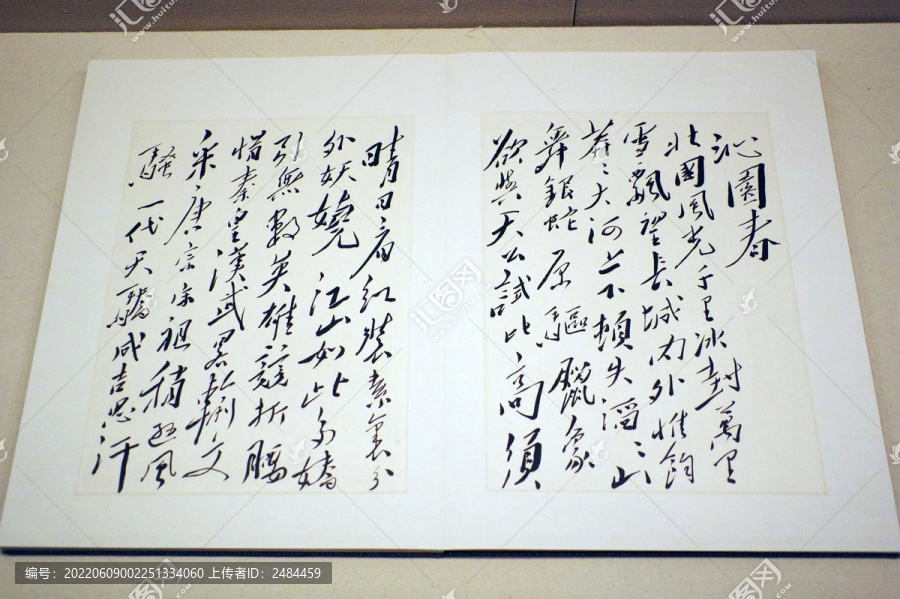 沁園春
北國風光千里冰封萬里
雪飄望長城内外惟餘
莽〻大河上下頓失滔〻山
舞銀蛇原驅臘象
欲與天公試比高須
晴日看紅裝素裹分
外妖嬈江山如此多嬌
引無數英雄競折腰
惜秦皇漢武略輸文
采唐宗宋祖稍遜風
騷一代天驕成吉思汗
汇图网
www.huitu.com
编号：20220609002251334060 上传者ID：2484459